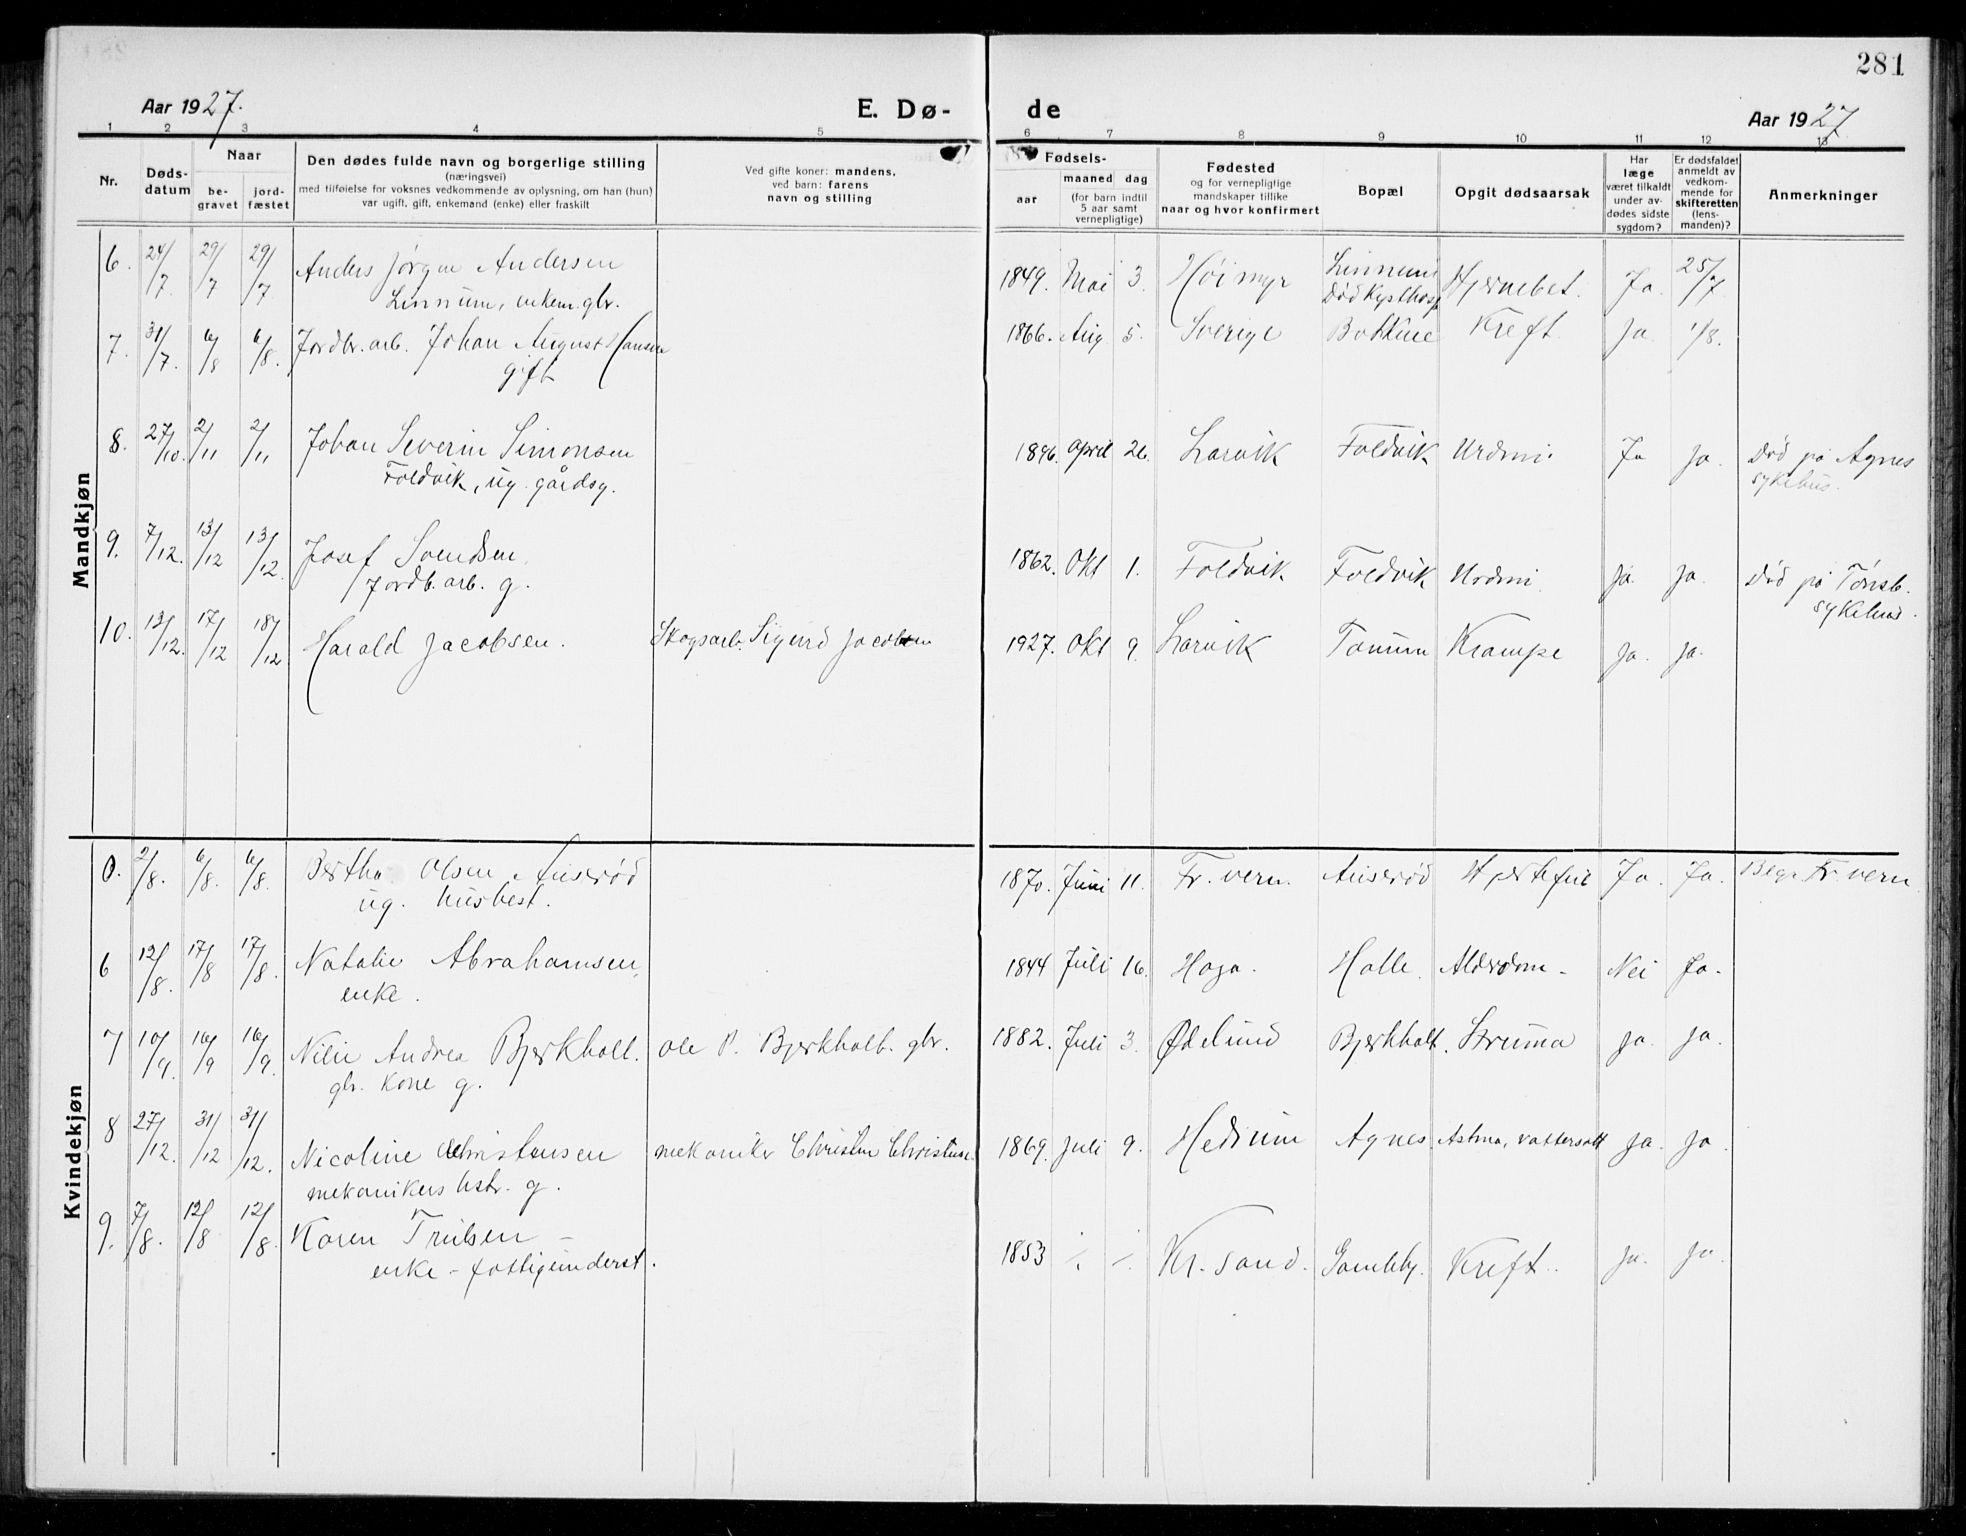 281
Aar 1927. E. Dø- de Aar 1927
1 2 3 4 5 6 7 8 9 10 11 12 13
Nr. Døds-datum Naar be-gravet jord-fæstet Den dødes fulde navn og borgerlige stilling (næringsvei) med tilføielse for voksnes vedkommende av oplysning, om han (hun) var ugift, gift, enkemand (enke) eller fraskilt Ved gifte koner: mandens, ved barn: farens navn og stilling Fødsels- aar maaned dag (for barn indtil 5 aar samt vernepligtige) Fødested og for vernepligtige mandskaper tillike naar og hvor konfirmert Bopæl Opgit dødsaarsak Har læge været tilkaldt under av-dødes sidste sygdom? Er dødsfaldet anmeldt av vedkom-mende for skifteretten (lens-manden)? Anmerkninger
Mandkjøn
6. 24/7 29/7 29/7 Anders Jørgen Andersen 1849. Mai 3. Høimyr Linnum Hjernebet. Ja. 25/7
Linnum, enkem. gbr. Død Kysthosp
7. 31/7. 6/8 6/8. Jordbr. arb. Johan August Hansen 1866. Aug 5. Sverige Kreft Ja. 1/8.
gift
8. 27/10. 2/11 2/11 Johan Severin Simonsen 1896. April 26. Larvik Foldvik Ja ja. Død på Agnes
Foldvik, ug. gårdsg. sykehus.
9. 7/12. 13/12 13/12. Josef Svendsen. 1862. Okt 1. Foldvik Foldvik ja. ja. Død på Tønsb.
Jordb. arb. g. sykehus.
10. 13/12. 17/12 18/12 Harald Jacobsen. Skogsarb. Sigurd Jacobsen 1927. Okt 9. Larvik Tanum Krampe ja. ja.
Kvindekjøn
0. 2/8. 6/8. 6/8. Bertha Olsen Auserød 1870. Juni 11. Fr. vern. Auserød Hjertefeil Ja. Ja. Begr. Fr. vern
ug. husbest.
6 12/8. 17/8 17/8. Natalie Abrahamsen, 1844 Juli 16. Haga. Halle. Alderdom - Nei Ja.
enke.
7 10/9. 16/9 16/9. Nilie Andrea Bjerkholt. Ole P. Bjerkholt. gbr. 1882. Juli 3. Ødelund Bjerkholt. Struma ja. ja.
gbr. kone g.
8 27/12. 31/12 31/12. Nicoline Christensen mekaniker Christen Christensen 1869. Juli 9. Hedrum Agnes Astma, vattersott ja. ja
mekanikers hstr. g.
9. 7/8. 12/8 12/8. Karen Trulsen - 1853 ./. ./. Kr. sand. Gamleby. Kreft. ja. ja.
enke - fattigunderst.